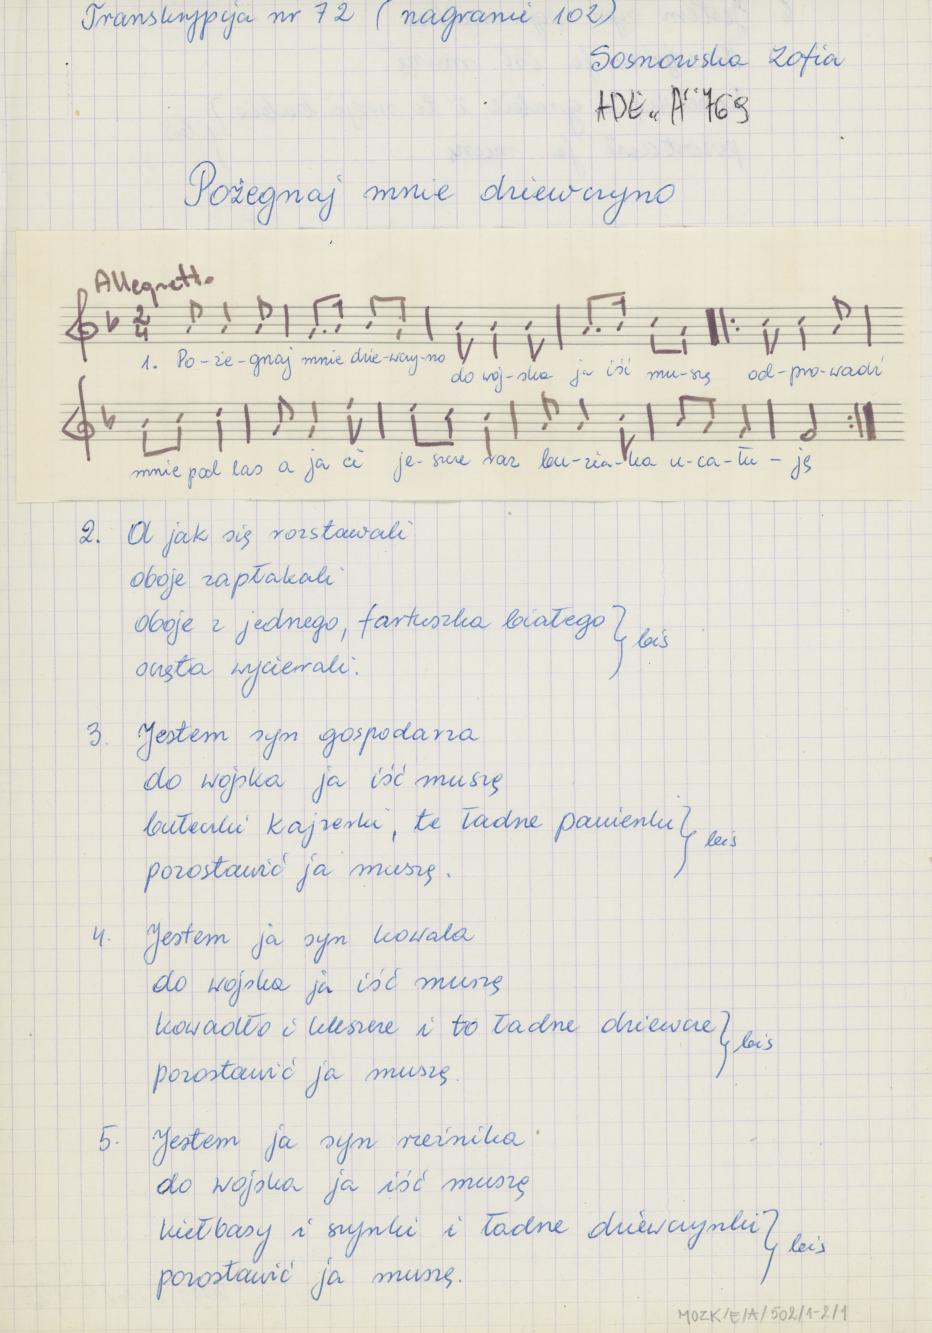 Transkrypcja nr 72 ( nagranie 102)
Sosnowska Zofia
ADE„A" 769
Pożegnaj mnie dziewczyno
Allegretto
2
4
1. Po-że-gnaj mnie dzie-wczy-no do woj-ska ja iść mu-szę od-pro-wadź
mnie pod las a ja ci je-szcze raz bu-zia-ka u-ca-łu-ję
2. A jak się rozstawali
oboje zapłakali
oboje z jednego, fartuszka białego } bis
oczęta wycierali.
3. Jestem syn gospodarza
do wojska ja iść muszę
bułeczki kajzerki, te ładne panienki } bis
pozostawić ja muszę.
4. Jestem ja syn kowala
do wojska ja iść muszę
kowadło i kleszcze i to ładne dziewcze } bis
pozostawić ja muszę.
5. Jestem ja syn rzeźnika
do wojska ja iść muszę
kiełbasy i szynki i ładne dziewczynki } bis
pozostawić ja muszę.
MOZK/E/A/502/1-2/1